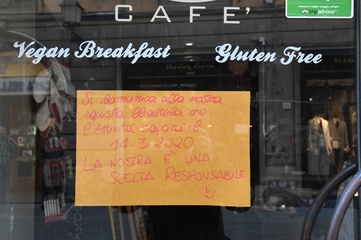 CAFE'
Vegan Breakfast Gluten Free
tripadvisor
Si comunica alla nostra
squisita clientela che
l'Attività riaprirà il
14-3-2020
LA NOSTRA È UNA
SCELTA RESPONSABILE